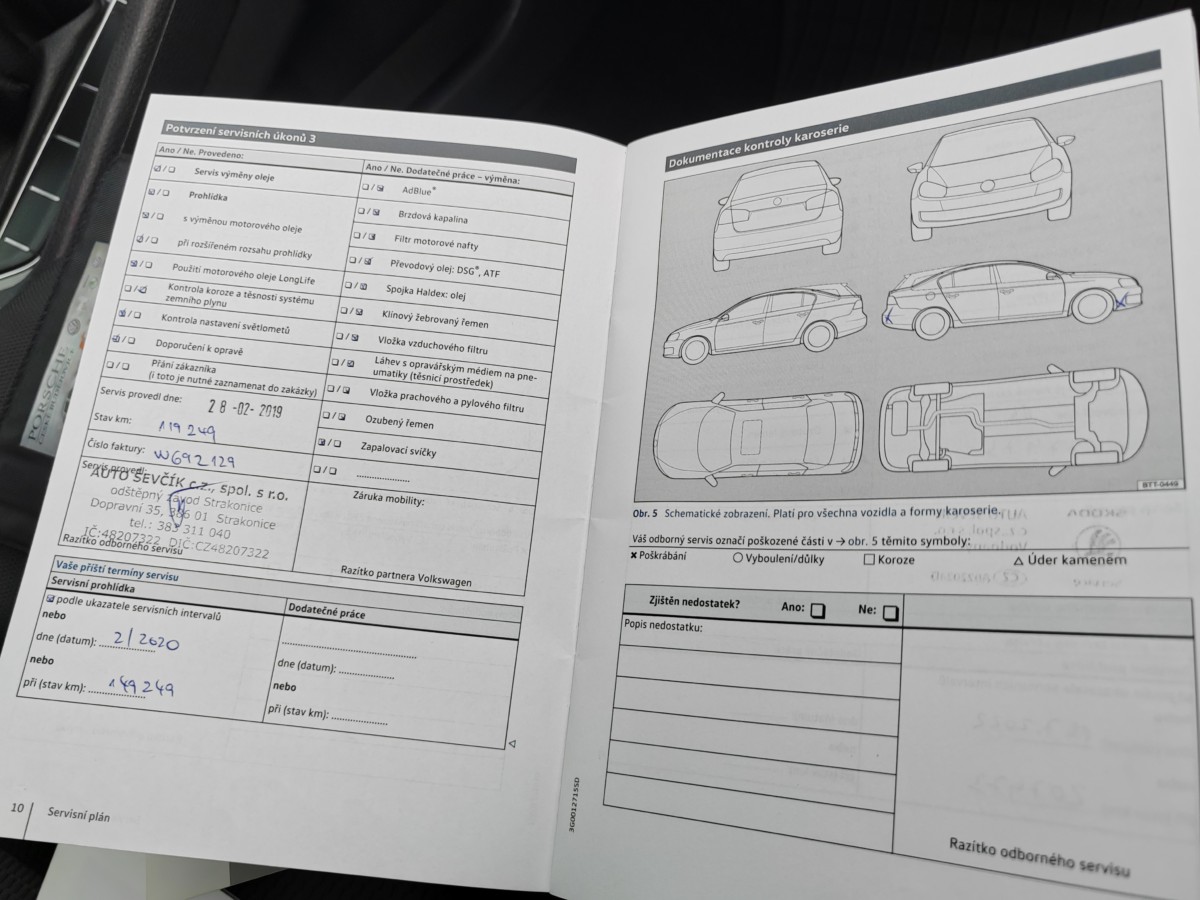 Potvrzení servisních úkonů 3
Ano / Ne. Provedeno:
Servis výměny oleje
Prohlídka
s výměnou motorového oleje
při rozšířeném rozsahu prohlídky
Použití motorového oleje LongLife
Kontrola koroze a těsnosti systému
zemního plynu
Kontrola nastavení světlometů
Doporučení k opravě
Přání zákazníka
(i toto je nutné zaznamenat do zakázky)
Servis provedl dne: 28 -02- 2019
Stav km: 119 249
Číslo faktury: W692129
Servis provedl:
AUTO ŠEVČÍK c.z., spol. s r.o.
odštěpný závod Strakonice
Dopravní 35, 386 01 Strakonice
tel.: 383 311 040
IČ:48207322 DIČ:CZ48207322
Razítko odborného servisu
Ano / Ne. Dodatečné práce – výměna:
AdBlue®
Brzdová kapalina
Filtr motorové nafty
Převodový olej: DSG®, ATF
Spojka Haldex: olej
Klínový žebrovaný řemen
Vložka vzduchového filtru
Láhev s opravářským médiem na pne-
umatiky (těsnicí prostředek)
Vložka prachového a pylového filtru
Ozubený řemen
Zapalovací svíčky
Záruka mobility:
Razítko partnera Volkswagen
Vaše příští termíny servisu
Servisní prohlídka
podle ukazatele servisních intervalů
nebo
dne (datum): 2/2020
nebo
při (stav km): 149 249
Dodatečné práce
dne (datum):
nebo
při (stav km):
10 Servisní plán
3G0012715SD
PORSCHE
Dokumentace kontroly karoserie
BTT-0449
Obr. 5 Schematické zobrazení. Platí pro všechna vozidla a formy karoserie.
Váš odborný servis označí poškozené části v → obr. 5 těmito symboly:
✖ Poškrábání ○ Vyboulení/důlky □ Koroze △ Úder kamenem
Zjištěn nedostatek? Ano: Ne:
Popis nedostatku:
Razítko odborného servisu